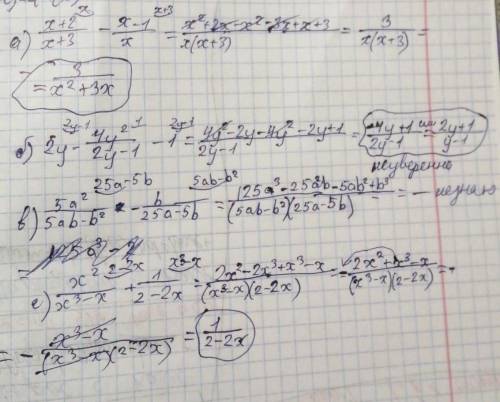 а) \frac{x+2}{x+3}^{x} - \frac{x-1}{x}^{x+3} = \frac{x^2+2x-x^2-3x+x+3}{x(x+3)} = \frac{3}{x(x+3)} =
= \frac{3}{x^2+3x}
б) 2y^{2y-1} - \frac{4y^2}{2y-1}^{1} - 1^{2y-1} = \frac{4y^2-2y-4y^2-2y+1}{2y-1} = \frac{-4y+1}{2y-1} или = \frac{2y+1}{y-1}
неуверена
в) \frac{5a^2}{5ab-b^2}^{25a-5b} - \frac{b}{25a-5b}^{5ab-b^2} = \frac{125a^3-25a^2b-5ab^2+b^3}{(5ab-b^2)(25a-5b)} = - незнаю
е) \frac{x^2}{x^3-x}^{2-2x} + \frac{1}{2-2x}^{x^3-x} = \frac{2x^2-2x^3+x^3-x}{(x^3-x)(2-2x)} = \frac{2x^2+x^3-x}{(x^3-x)(2-2x)} = -
= - \frac{x^3-x}{(x^3-x)(2-2x)} = \frac{1}{2-2x}